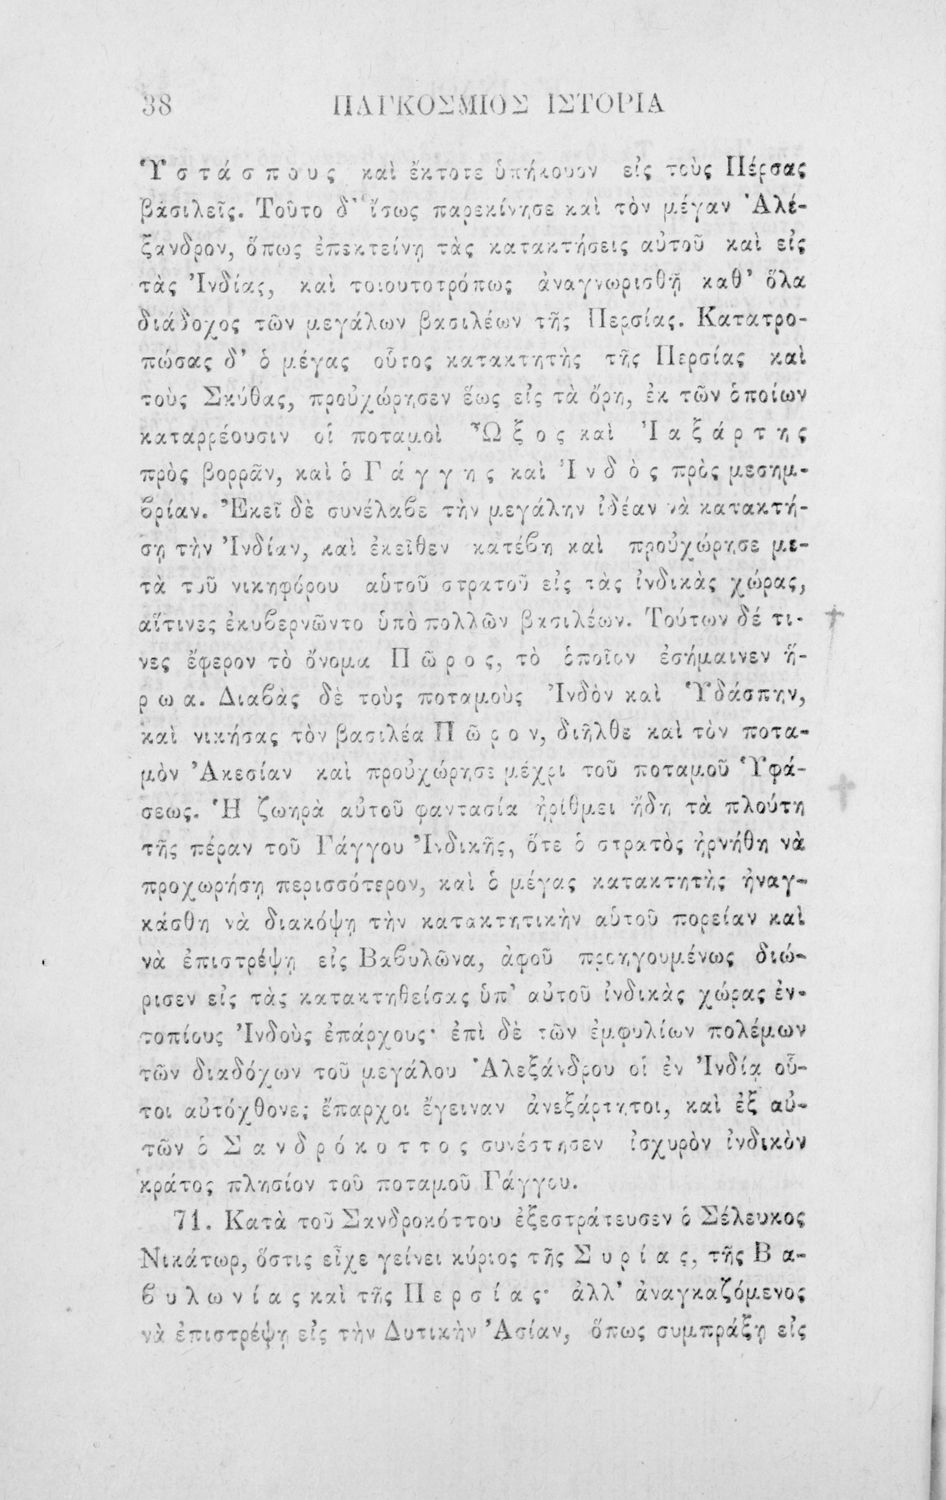 38 ΠΑΓΚΟΣΜΙΟΣ ΙΣΤΟΡΙΑ
Ὑστάσπους καὶ ἔκτοτε ὑπήκουον εἰς τοὺς Πέρσας
βασιλεῖς. Τοῦτο δ' ἴσως παρεκίνησε καὶ τὸν μέγαν Ἀλέ-
ξανδρον, ὅπως ἐπεκτείνῃ τὰς κατακτήσεις αὐτοῦ καὶ εἰς
τὰς Ἰνδίας, καὶ τοιουτοτρόπως ἀναγνωρισθῇ καθ' ὅλα
διάδοχος τῶν μεγάλων βασιλέων τῆς Περσίας. Κατατρο-
πώσας δ' ὁ μέγας οὗτος κατακτητὴς τῆς Περσίας καὶ
τοὺς Σκύθας, προὐχώρησεν ἕως εἰς τὰ ὄρη, ἐκ τῶν ὁποίων
καταρρέουσιν οἱ ποταμοὶ Ὦξος καὶ Ἰαξάρτης
πρὸς βορρᾶν, καὶ ὁ Γάγγης καὶ Ἰνδὸς πρὸς μεσημ-
βρίαν. Ἐκεῖ δὲ συνέλαβε τὴν μεγάλην ἰδέαν νὰ κατακτή-
σῃ τὴν Ἰνδίαν, καὶ ἐκεῖθεν κατέβη καὶ προὐχώρησε με-
τὰ τοῦ νικηφόρου αὑτοῦ στρατοῦ εἰς τὰς ἰνδικὰς χώρας,
αἵτινες ἐκυβερνῶντο ὑπὸ πολλῶν βασιλέων. Τούτων δέ τι-
νες ἔφερον τὸ ὄνομα Πῶρος, τὸ ὁποῖον ἐσήμαινεν ἥ-
ρωα. Διαβὰς δὲ τοὺς ποταμοὺς Ἰνδὸν καὶ Ὑδάσπην,
καὶ νικήσας τὸν βασιλέα Πῶρον, διῆλθε καὶ τὸν ποτα-
μὸν Ἀκεσίαν καὶ προὐχώρησε μέχρι τοῦ ποταμοῦ Ὑφά-
σεως. Ἡ ζωηρὰ αὐτοῦ φαντασία ἠρίθμει ἤδη τὰ πλούτη
τῆς πέραν τοῦ Γάγγου Ἰνδικῆς, ὅτε ὁ στρατὸς ἠρνήθη νὰ
προχωρήσῃ περισσότερον, καὶ ὁ μέγας κατακτητὴς ἠναγ-
κάσθη νὰ διακόψῃ τὴν κατακτητικὴν αὑτοῦ πορείαν καὶ
νὰ ἐπιστρέψῃ εἰς Βαβυλῶνα, ἀφοῦ προηγουμένως διώ-
ρισεν εἰς τὰς κατακτηθείσας ὑπ' αὐτοῦ ἰνδικὰς χώρας ἐν-
τοπίους Ἰνδοὺς ἐπάρχους· ἐπὶ δὲ τῶν ἐμφυλίων πολέμων
τῶν διαδόχων τοῦ μεγάλου Ἀλεξάνδρου οἱ ἐν Ἰνδίᾳ οὗ-
τοι αὐτόχθονες ἔπαρχοι ἔγειναν ἀνεξάρτητοι, καὶ ἐξ αὐ-
τῶν ὁ Σανδρόκοττος συνέστησεν ἰσχυρὸν ἰνδικὸν
κράτος πλησίον τοῦ ποταμοῦ Γάγγου.
71. Κατὰ τοῦ Σανδροκόττου ἐξεστράτευσεν ὁ Σέλευκος
Νικάτωρ, ὅστις εἶχε γείνει κύριος τῆς Συρίας, τῆς Βα-
βυλωνίας καὶ τῆς Περσίας· ἀλλ' ἀναγκαζόμενος
νὰ ἐπιστρέψῃ εἰς τὴν Δυτικὴν Ἀσίαν, ὅπως συμπράξῃ εἰς